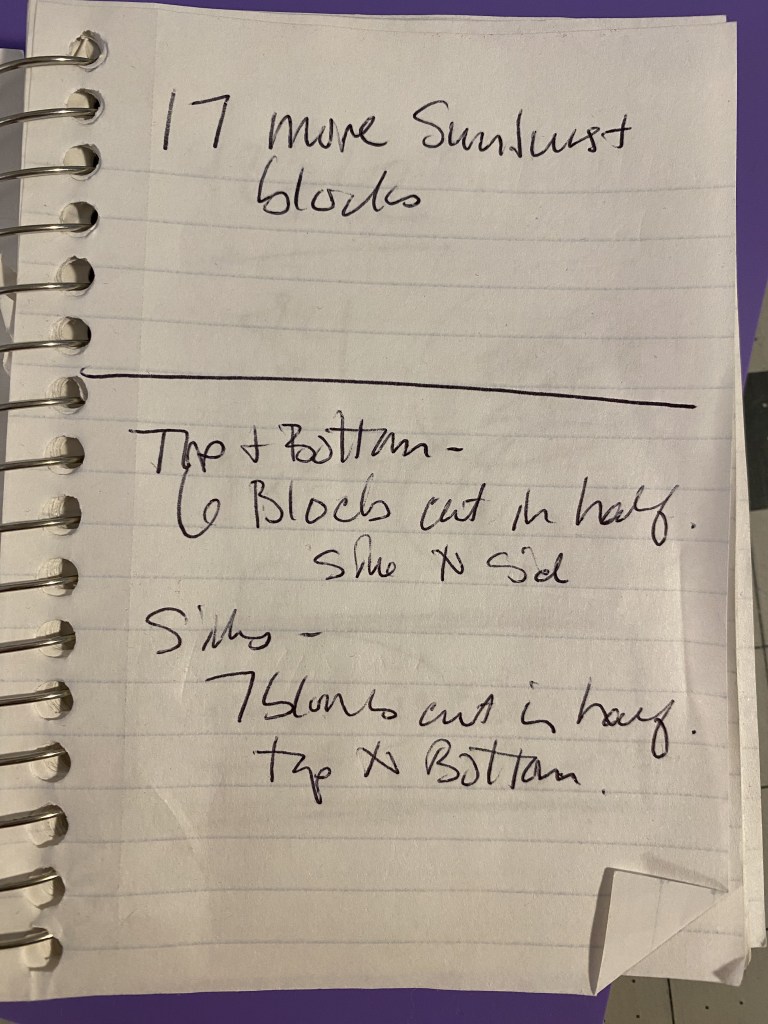 17 more Sunburst
blocks
Top + Bottom -
6 Blocks cut in half.
side to Sid
Sides -
7 blocks cut in half.
top to Bottom.